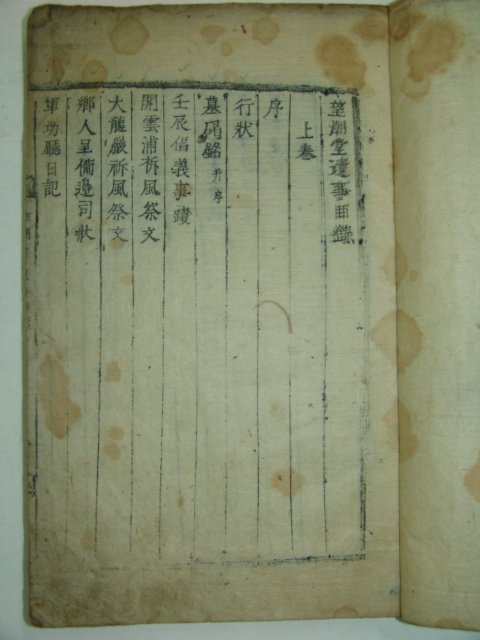 望潮堂遺事目錄
上卷
序
行狀
墓碣銘 幷序
壬辰倡義事蹟
開雲浦祈風祭文
大龍巖祈風祭文
鄉人呈備邊司狀
軍功廳日記